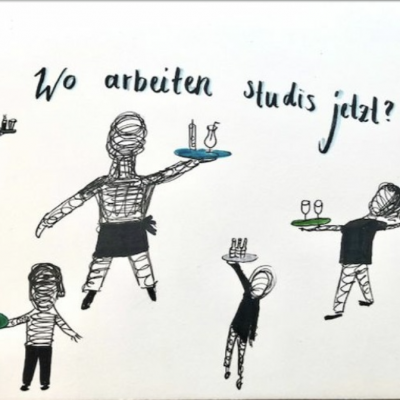 Wo arbeiten studis jetzt?